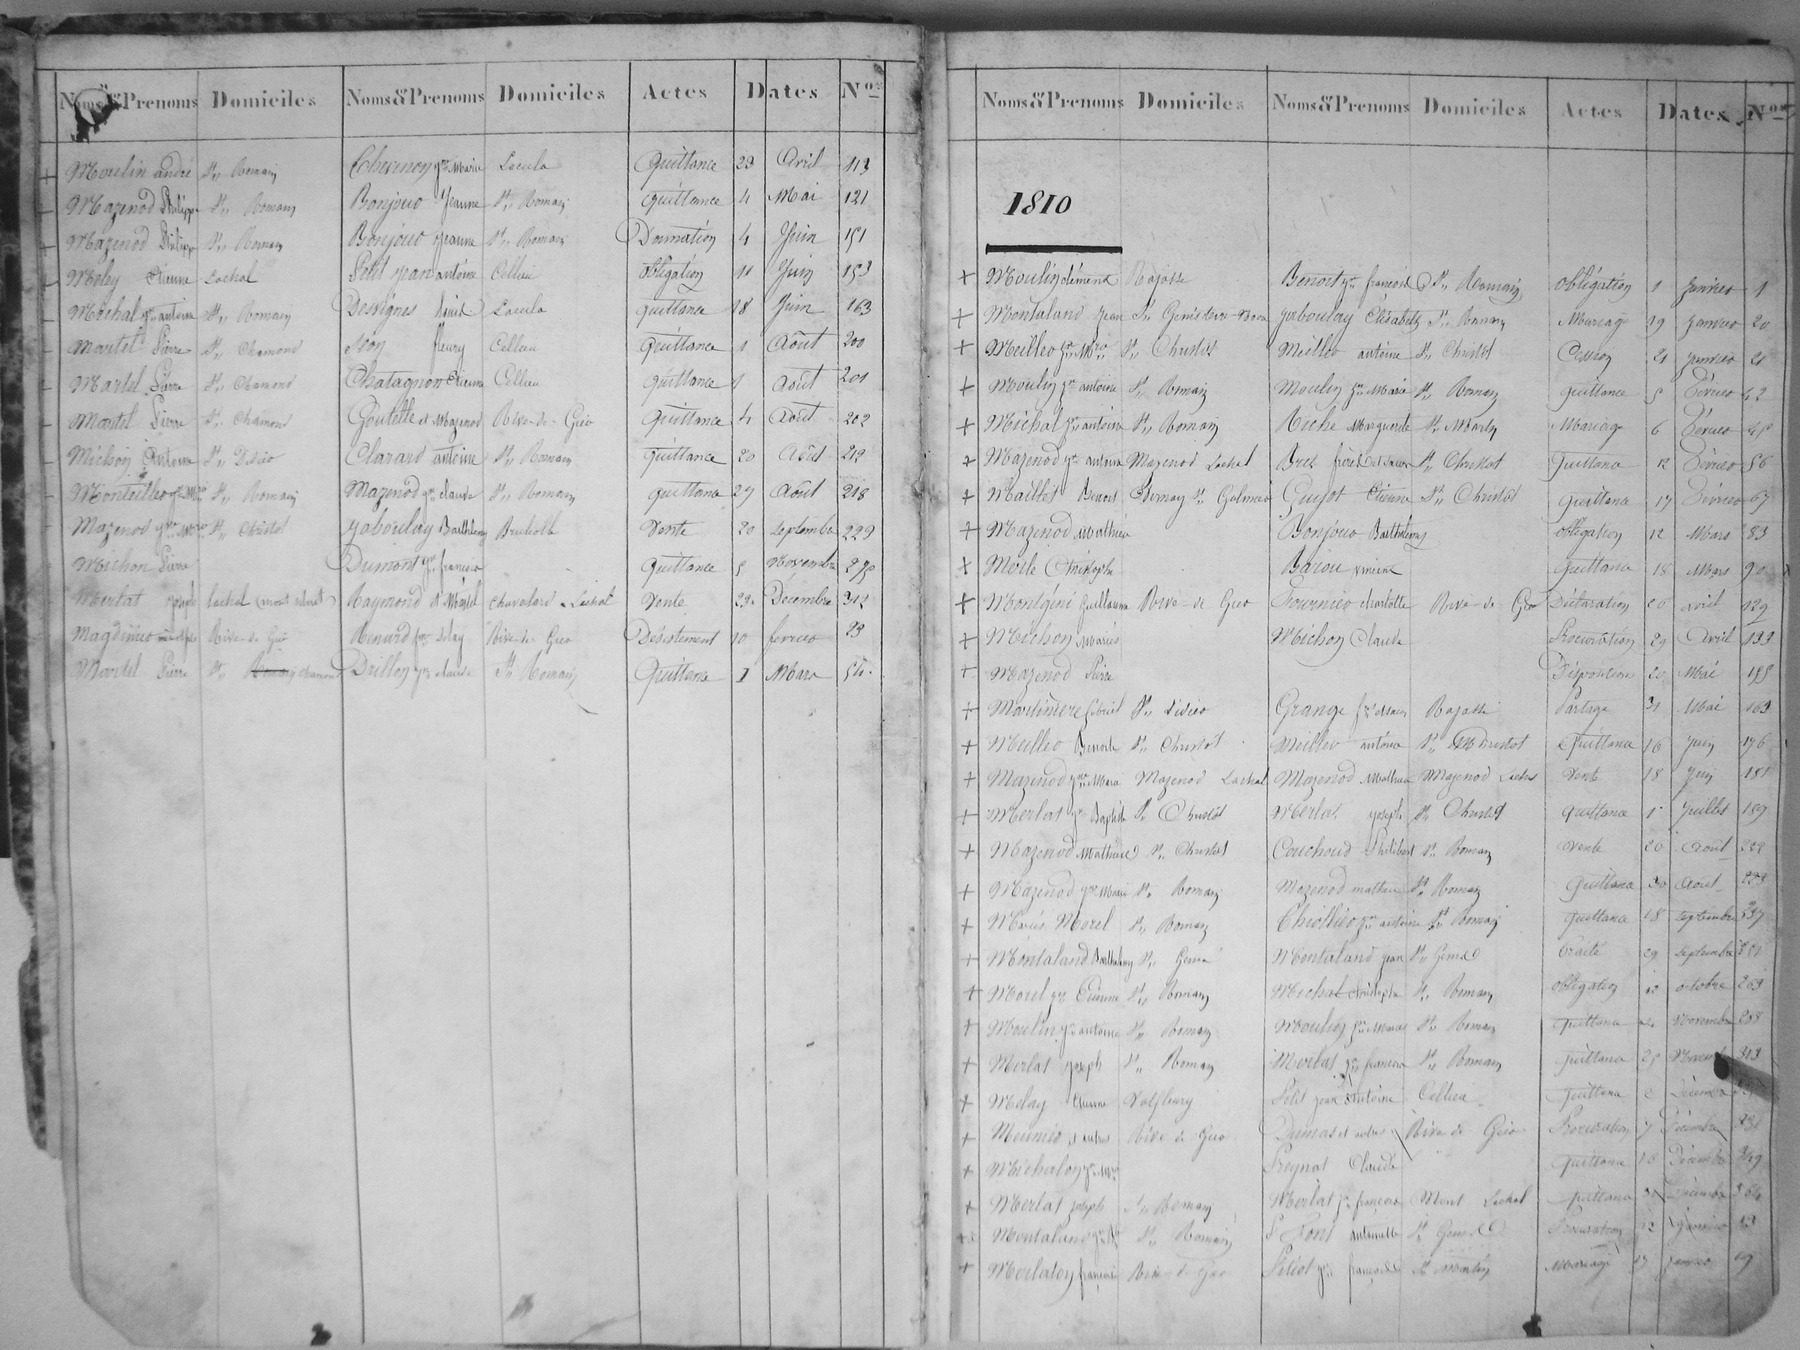 Noms & Prenoms Domiciles Noms & Prenoms Domiciles Actes Dates Nos
Moulin andré St Romain Chermon jne Marie Lacula Quittance 23 avril 113
Mazenod Philippe St Romain Bonjour Jeanne St Romain quittance 4 Mai 121
Mazenod Philippe St Romain Bonjour Jeanne St Romain Donnation 4 Juin 151
Moley Etienne Lachal Petit jean antoine Cellieu obligation 11 Juin 153
Michal jn antoine St Romain Dessignes Louis Lacula quittance 18 Juin 163
Martel Pierre St Chamond fleury Cellieu Quittance 1 Août 200
Martel Pierre St Chamond Chatagnon Etienne Cellieu quittance 1 août 201
Martel Pierre St Chamond Goutelle et Mazenod Rive-de-Gier Quittance 4 août 202
Michon Antoine St Didier Clarard antoine St Romain quittance 20 août 212
Monteiller jn Mie St Romain Mazenod jn claude St Romain quittance 27 août 218
Mazenod jn St Christot jaboulay Barthlemy Vente 20 septembre 229
Michon Pierre Dumont jn francois Quittance 5 Novembre 270
Merlat joseph lachal Raymond et Martel Chavelard Lachal Vente 29 Décembre 312
Magdinier Rive-de-Gier Renard Rive-de-Gier Désistement 10 fevrier 23
Martel Pierre St Chamond Drillon jn claude St Romain Quittance 1 Mars 54
Noms & Prenoms Domiciles Noms & Prenoms Domiciles Actes Dates Nos
1810
+ Moulin clément Rajasse Benoit jn francois St Romain obligation 1 janvier 1
+ Montaland jean St Genis terre-Noire jaboulay Elisabeth St Romain Mariage 19 janvier 20
+ Meiller jn Mie St Christot Meiller antoine St Christot Cession 21 janvier 21
+ Moulin jn antoine St Romain Moulin jn Marie St Romain quittance 5 Février 42
+ Michal jn antoine St Romain Riche Marguerite St Martin Mariage 6 Février 45
+ Mazenod jn antoine Mazenod Lachal frères et soeur St Christot Quittance 12 Février 56
+ Maillet Benoit St Galmier Guyot Etienne St Christot quittance 17 Février 67
+ Mazenod Mathieu Bonjour Barthelemy obligation 12 Mars 83
+ Merle Christophe Bajou vincent Quittance 18 Mars 90
+ Guillaume Rive-de-Gier Fournier charlotte Rive-de-Gier Déclaration 20 avril 129
+ Michon Marie Michon Claude Procuration 29 avril 133
+ Mazenod Pierre Disposition 20 Mai 155
+ Martiniere Gabriel St Didier Grange Rajasse Partage 31 Mai 163
+ Meiller Benoite St Christot Meiller antoine St Christot Quittance 16 juin 176
+ Mazenod jn Marie Mazenod Lachal Mazenod Mathieu Mazenod Lachal Vente 18 juin 181
+ Merlat jn Baptiste St Christot Merlat joseph St Christot quittance 1 juillet 189
+ Mazenod Mathieu St Christot Couchoud Philibert St Romain vente 20 août 222
+ Mazenod jne Marie St Romain Mazenod mathieu St Romain Quittance 30 août 223
+ Marie Morel St Romain jn antoine St Romain quittance 18 septembre 237
+ Montaland Barthelemy St Genis Montaland jean St Genis traité 29 septembre 251
+ Morel jn Etienne St Romain Michal christophe St Romain obligation 12 octobre 263
+ Moulin jn antoine St Romain Moulin jn Marie St Romain quittance Novembre 298
+ Merlat joseph St Romain Merlat jn francois St Romain quittance 25 Novembre 313
+ Molay Etienne Valfleury Petit jean Antoine Cellieu quittance 2 Décembre
+ Meunier et autres Rive de Gier Dumas et autres Rive de Gier Procuration 7 Décembre 331
+ Michalon jn Mie Preynat Claude quittance 16 Décembre 349
+ Merlat joseph St Romain Merlat jn francois Mont Lachal quittance Décembre 364
+ Montaland St Romain Font antoinette St Genis Procuration 12 janvier 13
+ Merlaton francois Rive-de-Gier Piliot jn francois St Martin Mariage 17 janvier 19